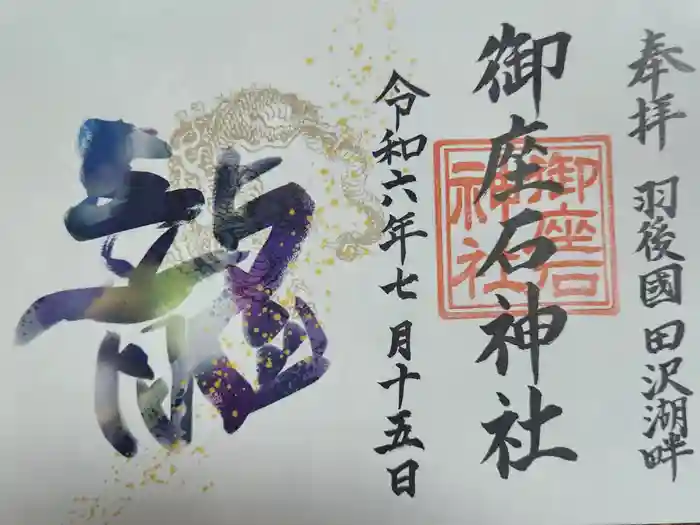 奉拝 羽後國田沢湖畔
御座石神社
御座石
神社
令和六年七月十五日
龍